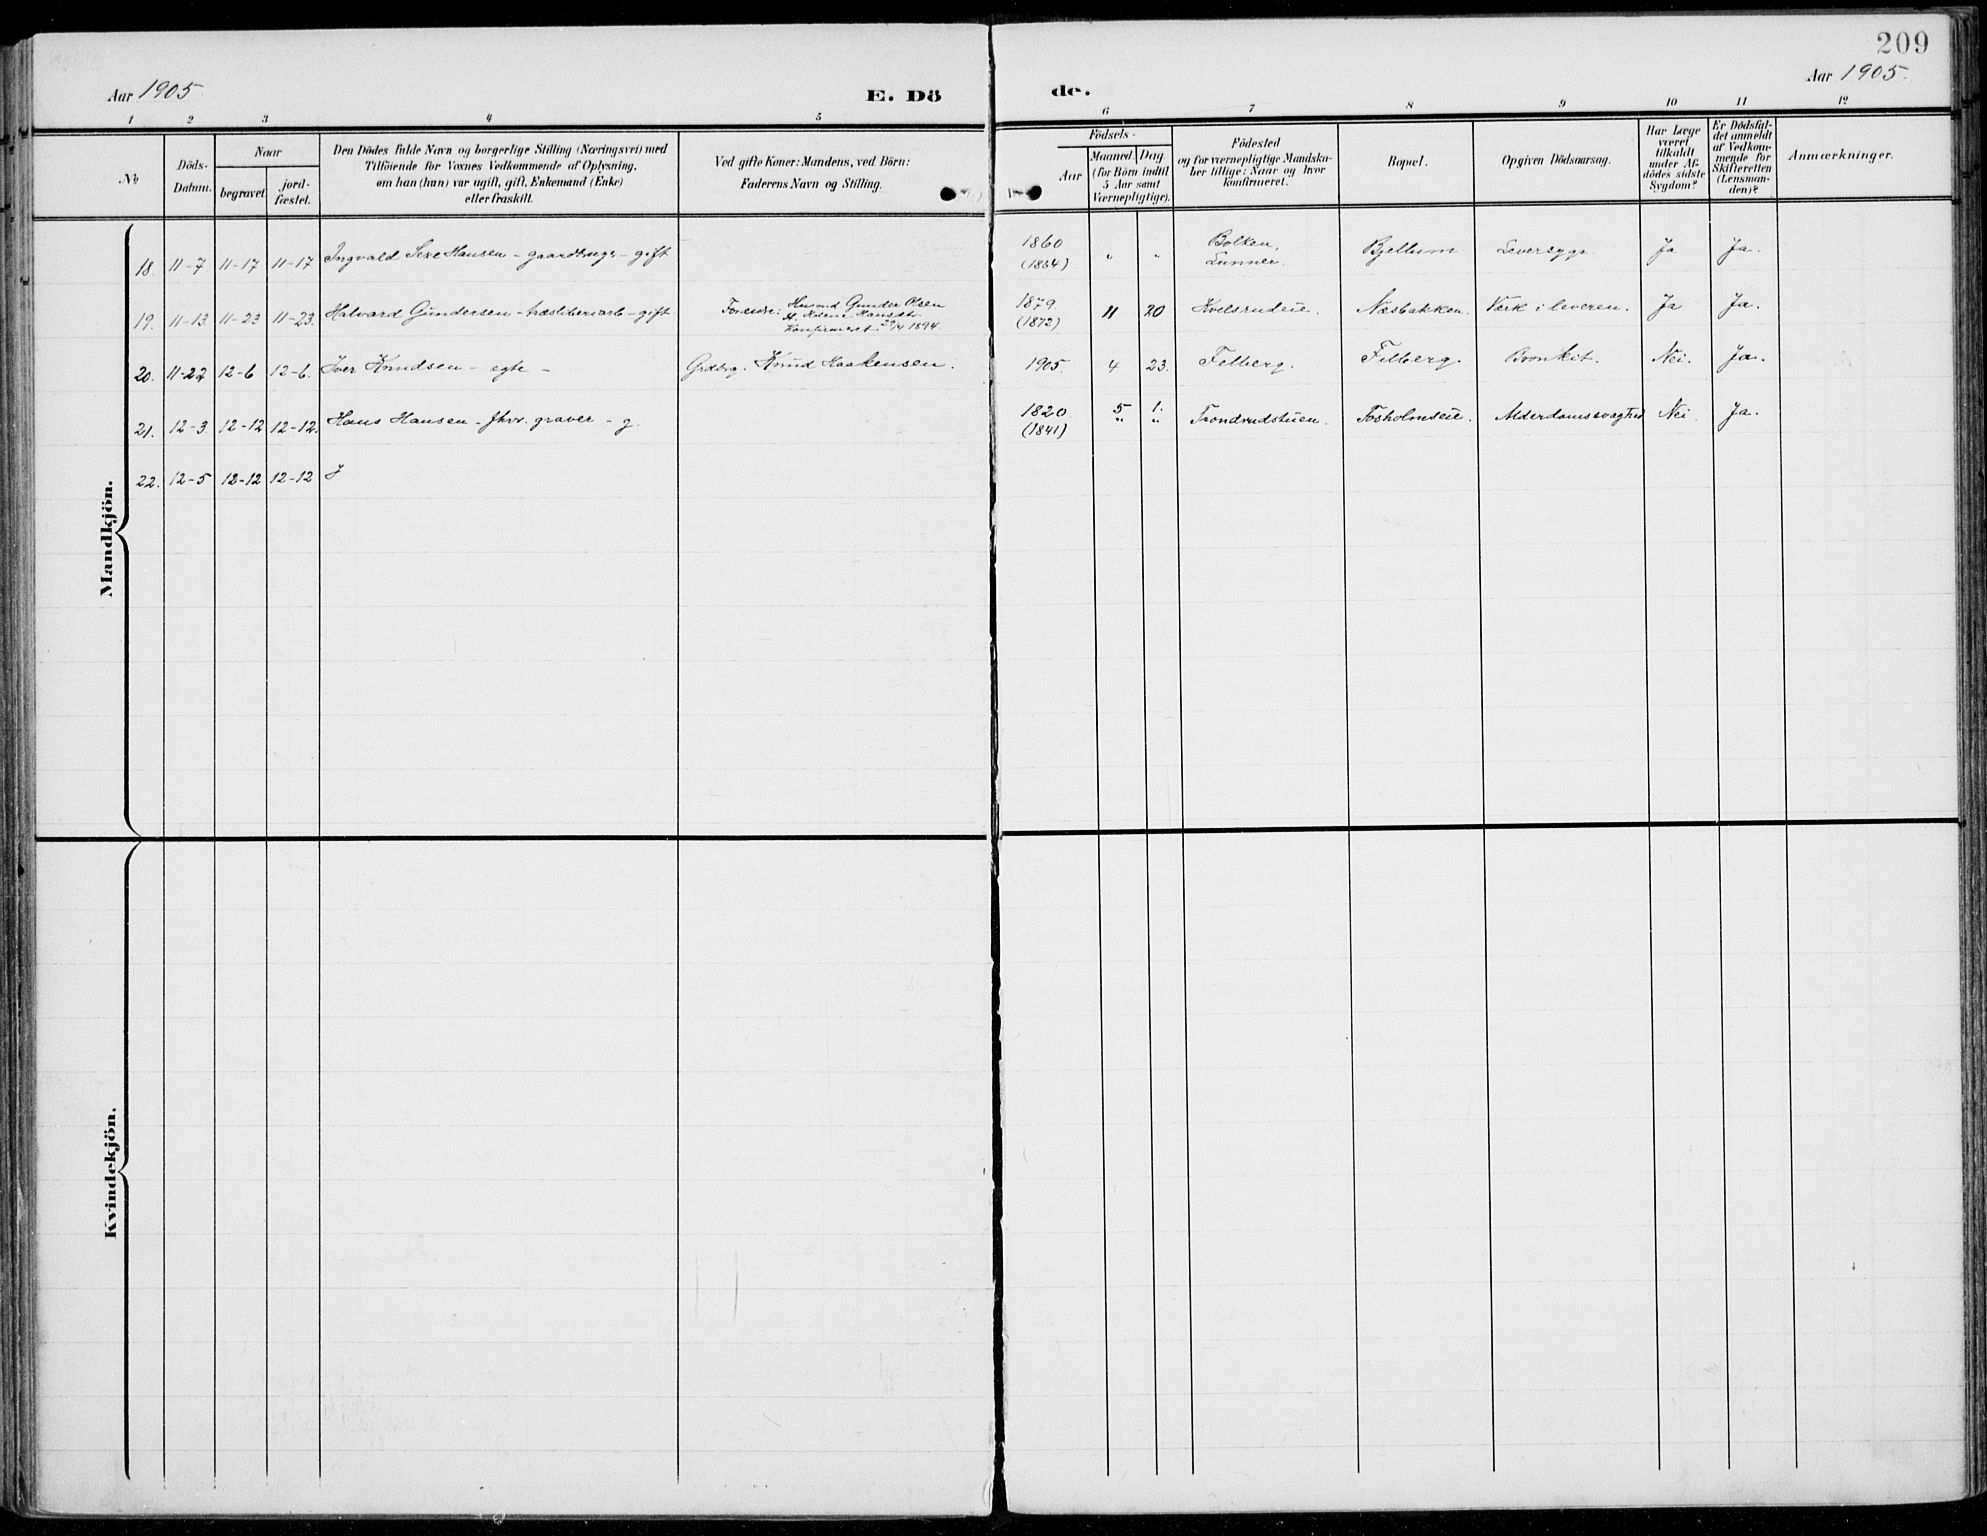 209
Aar 1905
E. Dö
de.
Aar 1905.
1 2 3 4 5
6 7 8 9 10 11 12
No
Döds-
Datum.
Naar
begravet.
jord-
fæstet.
Den Dödes fulde Navn og borgerlige Stilling (Næringsvei) med
Tilföiende for Voxnes Vedkommende af Oplysning,
om han (hun) var ugift, gift, Enkemand (Enke)
eller fraskilt.
Ved gifte Koner: Mandens, ved Börn:
Faderens Navn og Stilling.
Födsels-
Aar
Maaned. Dag.
(for Börn indtil
5 Aar samt
Værnepligtige).
Födested
og for værnepligtige Mandska-
ber tillige: Naar og hvor
konfirmeret.
Bopæl.
Opgiven Dödsaarsag.
Har Læge
været
tilkaldt
under Af-
dödes sidste
Sygdom?
Er Dödsfal-
det anmeldt
af Vedkom-
mende for
Skifteretten
(Lensman-
den)?
Anmærkninger.
Mandkjön.
18. 11-7 11-17 11-17 Ingvald Hansen - gaardbruger - gift
1860 (1864) " " Bolken, Lunner. Bjellum Leversyge. Ja Ja.
19. 11-13 11-23 11-23. Halvard Gundersen - træsliberiarb - gift
Forældre: Husmd Gunder Olsen
Hansdtr.
Konfirmeret 29/4 1894.
1879. (1872) 11 20 Kvelsrudeie. Næsbakken. Værk i leveren. Ja Ja.
20. 11-22 12-6 12-6. Iver Knudsen - egte -
Grdbrg. Knud Haakensen.
1905. 4 23. Felberg. Felberg. Bronkit. Nei. Ja.
21. 12-3 12-12 12-12. Hans Hansen - fhv. graver - g.
1820 (1841) 5 1. " " Trondrudstuen. Fosholmseie. Alderdomssvaghed Nei. Ja.
22. 12-5 12-12 12-12 J
Kvindekjön.